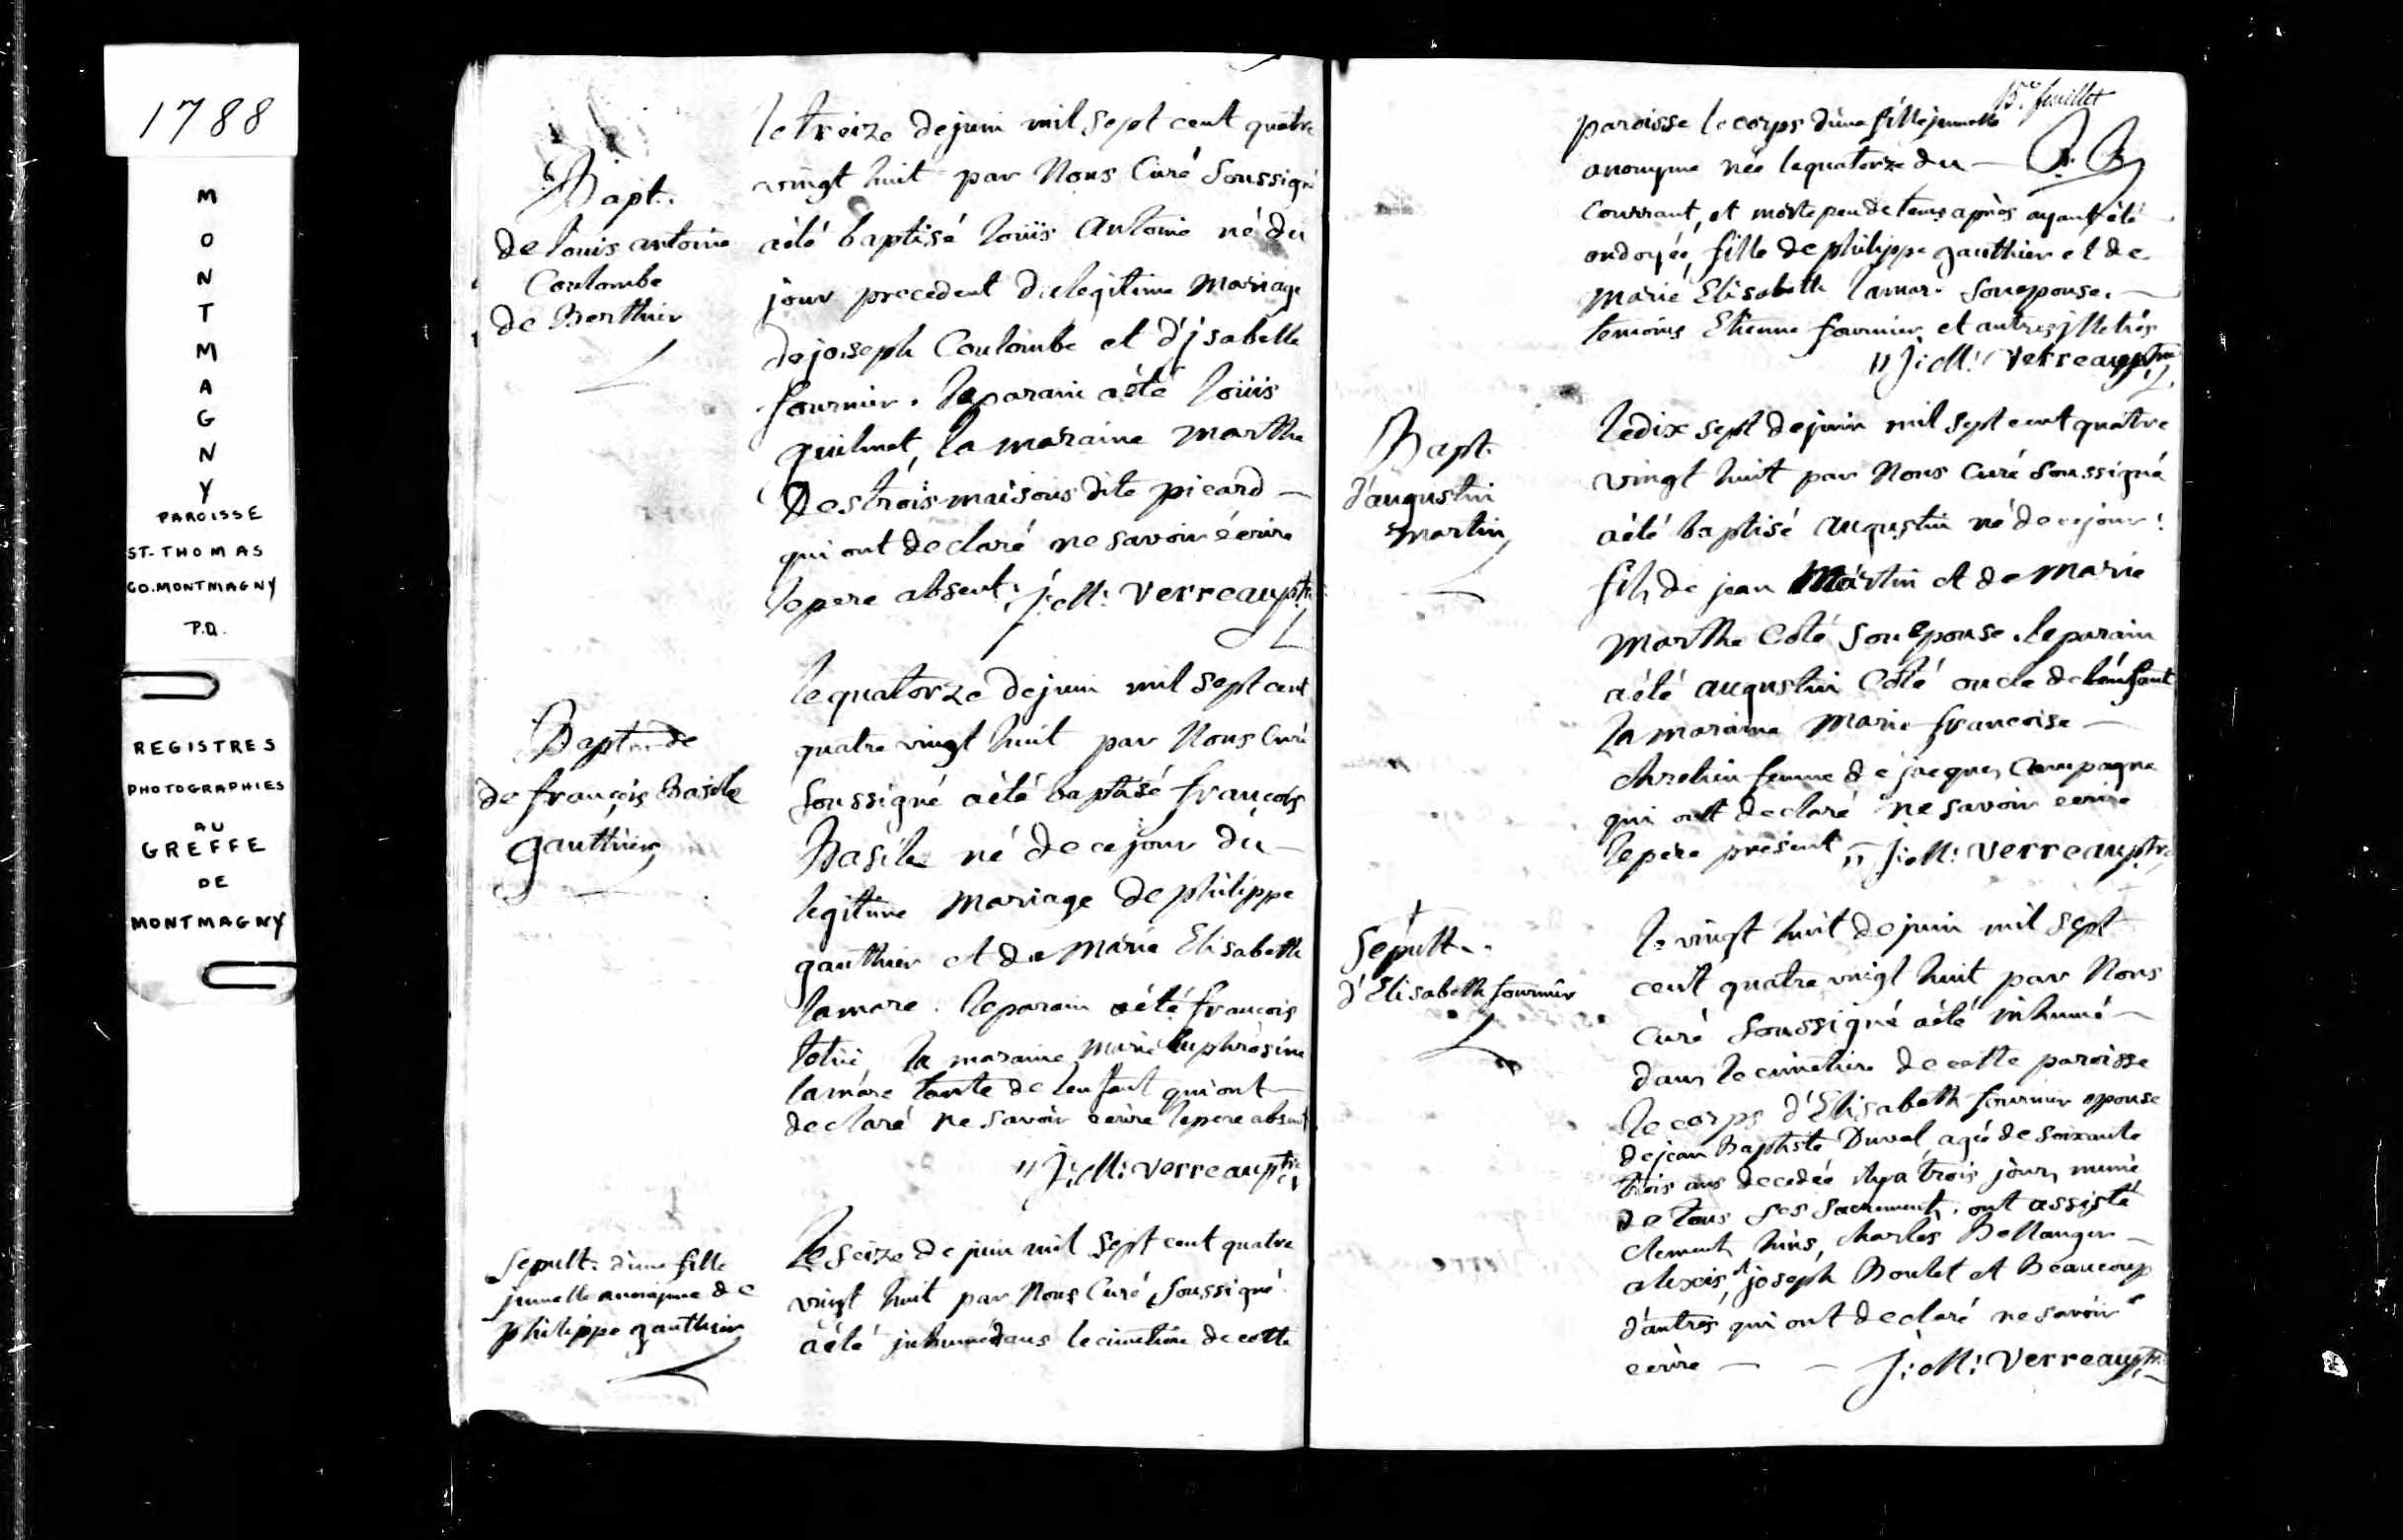 1788
MONTMAGNY
PAROISSE
ST-THOMAS
CO. MONTMAGNY
P.Q.
REGISTRES
PHOTOGRAPHIES
AU
GREFFE
DE
MONTMAGNY
Bapt.
de louis antoine
Coulombe
de Berthier
le treize de juin mil sept cent quatre
vingt huit par Nous Curé Soussigné
a été baptisé loüis Antoine né du
jour precedent du legitime Mariage
de joseph Coulombe et d'jsabelle
fournier. le parain a été loüis
guilmet, la maraine marthe
Destroismaisons dite picard —
qui ont declaré ne savoir écrire
le pere absent. J: M: Verreau ptre
Bapt. de
de françois Basile
gauthier
le quatorze de juin mil sept cent
quatre vingt huit par Nous Curé
Soussigné a été baptisé françois
Basile né de ce jour du —
legitime Mariage de philippe
gauthier et de Marie Elisabeth
lamare. le parain a été françois
la maraine Marie Euphrosine
lamare tante de lenfant qui ont —
declaré ne savoir ecrire le pere absent
" J: M: Verreau ptre
Sepult. d'une fille
jumelle anonyme de
philippe gauthier
Le seize de juin mil sept cent quatre
vingt huit par Nous Curé Soussigné
a été jnhumé dans le cimetiere de cette
15e feuillet
paroisse le corps d'une fille jumelle
anonyme née le quatorze du —
Courrant, et morte peu de tems après ayant été
ondoyée, fille de philippe gauthier et de
Marie Elisabeth lamare son epouse. —
temoins Etienne fournier et autres jlletrés
" J: M: Verreau ptre
Bapt.
d'augustin
martin
le dix sept de juin mil sept cent quatre
vingt huit par Nous Curé Soussigné
a été baptisé augustin né de ce jour
fils de jean Martin et de Marie
Marthe Coté son epouse. le parain
a été augustin Côté oncle de lénfant
la maraine Marie francoise —
chretien femme de jacques Campagna
qui ont declaré ne savoir ecrire
le père présent " J: M: Verreau ptre
Sépult.
d'Elisabeth fournier
le vingt huit de juin mil sept
cent quatre vingt huit par Nous
Curé Soussigné a été inhumé —
dans le cimetiere de cette paroisse
le corps d'Elisabeth fournier epouse
de jean Baptiste Duval, agée de soixante
trois ans decedée il y a trois jours munie
de tous ses sacrements. ont assisté
Charles Bellanger —
alexis, et joseph Boulet et Beaucoup
d'autres qui ont declaré ne savoir
ecrire — — J: M: Verreau ptre